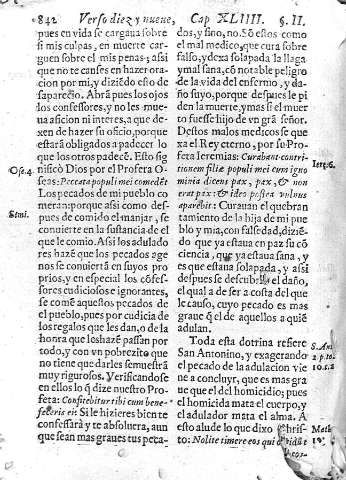 842 Verso diez y nueve, Cap XLIIII. §. II
pues en vida se cargaua sobre
si mis culpas, en muerte car-
guen sobre el mis penas; assi
que no te canses en hazer ora-
cion por mi, y diziẽdo esto de
saparecio. Abrã pues los ojos
los confessores, y no les mue-
ua aficion ni interes, a que de-
xen de hazer su oficio, porque
estará obligados a padecer lo
que los otros padecẽ. Esto sig
nificò Dios por el Profeta O-
Ose.4.
seas: Peccata populi mei comedẽt
Los pecados de mi pueblo co
meran: porque assi como des-
pues de comido el manjar, se
Simi.
conuierte en la sustancia de el
que le comio. Assi los adulado
res hazẽ que los pecados age
nos se conuiertã en suyos pro
prios, y en especial los cõfes-
sores cudiciosos e ignorantes,
se comẽ aquestos pecados de
el pueblo, pues por cudicia de
los regalos que les dan, o de la
honra que les hazẽ passan por
todo, y con vn pobrezito que
no tiene que darles semuestrã
muy rigurosos. Verificandose
en ellos lo q̃ dize nuestro Pro-
feta: Confitebitur tibi cum bene-
feceris ei: Si le hizieres bien te
confessarà y te absoluera, aun
que sean mas graues tus peca-
dos, y sino, no. Sõ estos como
el mal medico, que cura sobre
falso, y dexa solapada la llaga
y mal sana, cõ notable peligro
de la vida del enfermo, y dan-
ño suyo, porque despues le pi
den la muerte, y mas si el muer
to fuesse hijo de vn grã señor.
Destos malos medicos se que
xa el Rey eterno, por su Profe
ta Ieremias: Curabant contri-
Iere.6.
tionem filiæ populi mei cum igno
minia dicens pax, pax, & non
erat pax: & ideo postea vulnus
aparebit: Curauan el quebran
tamiento de la hija de mi pue
blo y mia, con falsedad, dizien
dõ que ya estaua en paz su cõ
ciencia, que ya estaua sana, y
es que estaua solapada, y assi
despues se descubrio el daño,
el qual a de ser a costa del que
le causo, cuyo pecado es mas
graue q̃ el de aquellos a quiẽ
adulan.
Toda esta dotrina refiere
San Antonino, y exagerando
S. An.
2. p. to.
el pecado de la adulacion vie
10. c. 2
ne a concluyr, que es mas gra
ue que el del homicidio; pues
el homicida mata el cuerpo, y
el adulador mata el alma. A
esto alude lo que dixo Chris-
Math
to: Nolite timere eos qui